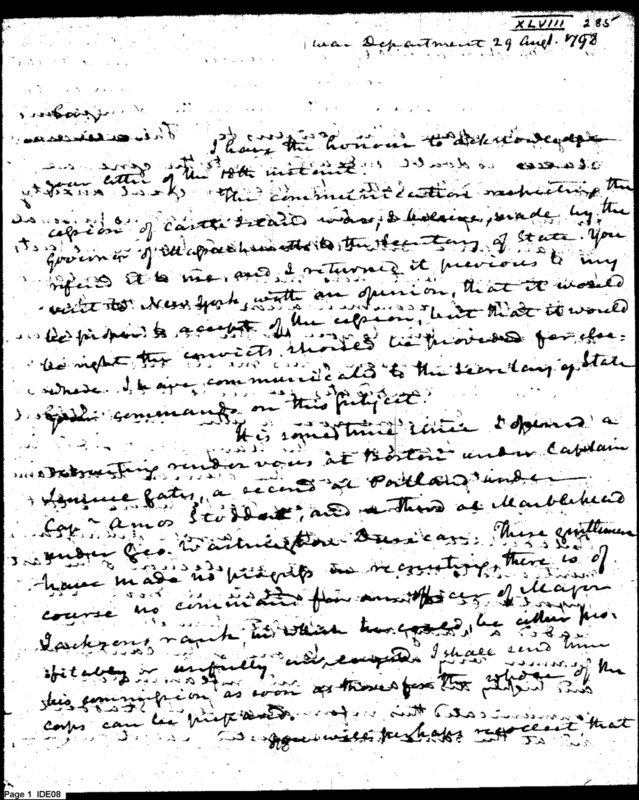 XLVIII 285
War Department 29 Augt. 1798
I have the honour to acknowledge
your letter of the 18th instant.
The communication respecting the
cession of Castle Island was, I believe, made by the
Governor of Massachusetts to the Secretary of State. You
referd it to me, and I returned it previous to my
visit to New York, with an opinion, that it would
be proper to accept of the cession, but that it would
be right the convicts should be provided for else=
where. I have communicated to the Secretary of State
your commands on this subject.
It is some time since I opened a
recruiting rendezvous at Boston under Captain
Lemuel Gates, a second at Portland under
Capn. Amos Stoddart, and a third at Marblehead
under Geo. Washington Duncan. These gentlemen
have made no progress in recruiting, there is of
course no command for an officer of Major
Jacksons rank, in which he could be either pro-
fitably or usefully employed. I shall send him
his commission as soon as those for the whole of the
corps can be prepared.
You will perhaps recollect that
Page 1 IDE08